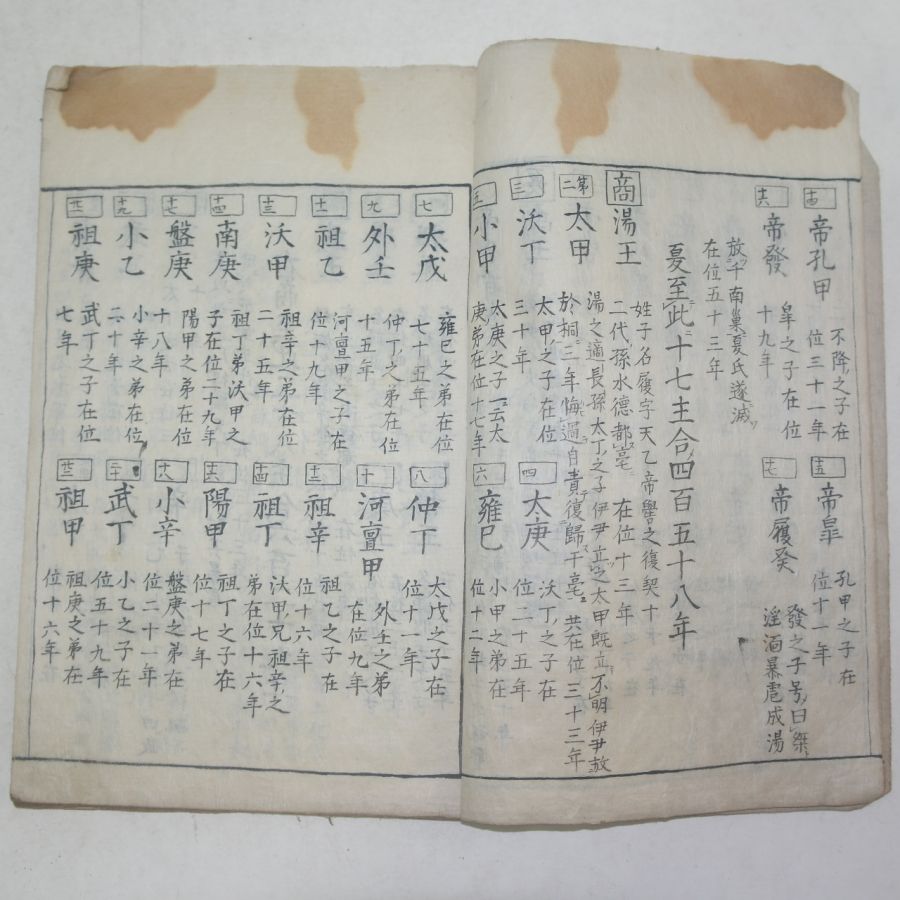 十四
帝孔甲
不降之子在
位三十一年
十五
帝皐
孔甲之子在
位十一年
十六
帝發
皐之子在位
十九年
十七
帝履癸
發之子号曰桀
淫酒暴虐成湯
放于南巢夏氏遂滅
在位五十三年
夏至此十七主合四百五十八年
商
湯王
姓子名履字天乙帝嚳之後契十
二代孫水德都亳 在位十三年
第二
太甲
湯之適長孫太丁之子伊尹立之太甲既立不明伊尹放
於桐三年悔過自責復歸于亳 共在位三十三年
三
沃丁
太甲之子在位
三十年
四
太庚
沃丁之子在
位二十五年
五
小甲
太庚之子一云太
庚弟在位十七年
六
雍巳
小甲之弟在
位十二年
七
太戊
雍巳之弟在位
七十五年
八
仲丁
太戊之子在
位十一年
九
外壬
仲丁之弟在位
十五年
十
河亶甲
外壬之弟
在位九年
十一
祖乙
河亶甲之子在
位十九年
十二
祖辛
祖乙之子在
位十六年
十三
沃甲
祖辛之弟在位
二十五年
十四
祖丁
沃甲兄祖辛之
弟在位十六年
十四
南庚
祖丁弟沃甲之
子在位二十九年
十六
陽甲
祖丁之子在
位十七年
十七
盤庚
陽甲之弟在位
十八年
十八
小辛
盤庚之弟在
位二十一年
十九
小乙
小辛之弟在位
二十年
二十
武丁
小乙之子在
位五十九年
廿一
祖庚
武丁之子在位
七年
廿二
祖甲
祖庚之弟在
位十六年